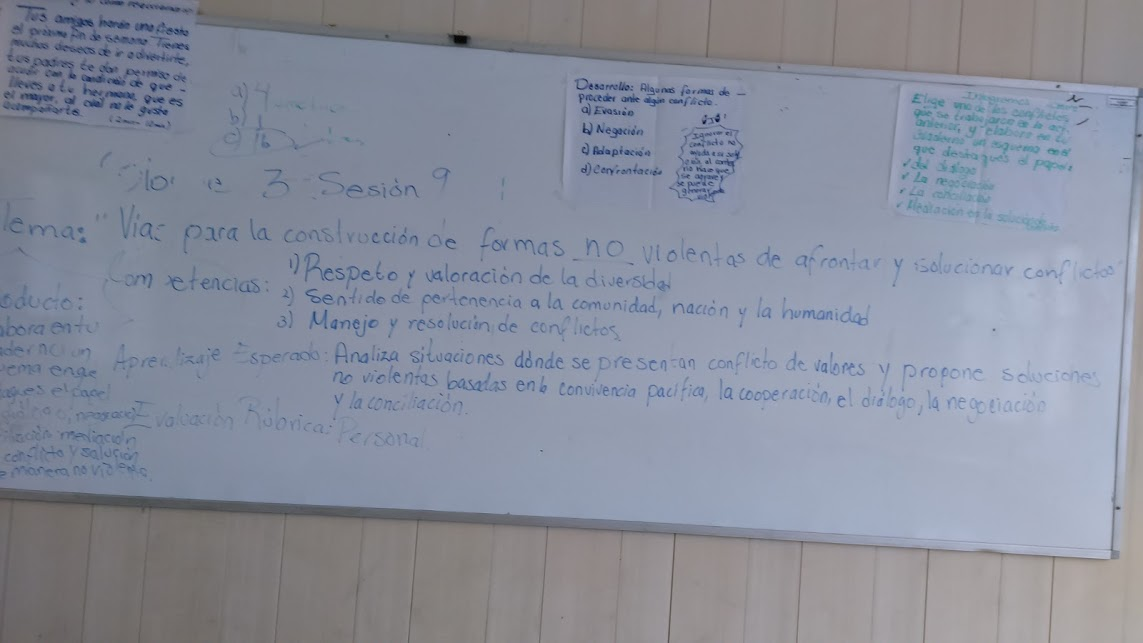 Tus amigos harán una fiesta
el próximo fin de semana. Tienes
muchos deseos de ir a divertirte,
tus padres te dan permiso de
acudir con la condición de que -
lleves a tu hermano, que es
el mayor, al cual no le gusta
acompañarte.
a) 4
b) 1
c) 16
Desarrollo: Algunas formas de -
proceder ante algún conflicto.
a) Evasión
b) Negación
c) Adaptación
d) Confrontación
Ignorar el
conflicto no
ayuda a
se puede
Elige uno de los conflictos
que se trabajaron en la act.
anterior, y elabora en tu
cuaderno un esquema en el
que destaques el papel
✓ del diálogo
✓ La negociación
✓ La conciliación
✓ Mediación en la solución de
3 Sesión 9
Tema: "Vías para la construcción de formas no violentas de afrontar y solucionar conflictos"
Competencias: 1) Respeto y valoración de la diversidad
2) Sentido de pertenencia a la comunidad, nación y la humanidad
3) Manejo y resolución de conflictos
Aprendizaje Esperado: Analiza situaciones dónde se presentan conflicto de valores y propone soluciones
no violentas basadas en la convivencia pacífica, la cooperación, el diálogo, la negociación
y la conciliación.
Evaluación Rúbrica: Personal
oducto:
abora en tu
aderno un
uema en q e
aques el papel
diálogo, negociaci
iliación mediación
conflicto y solución
e manera no violenta.